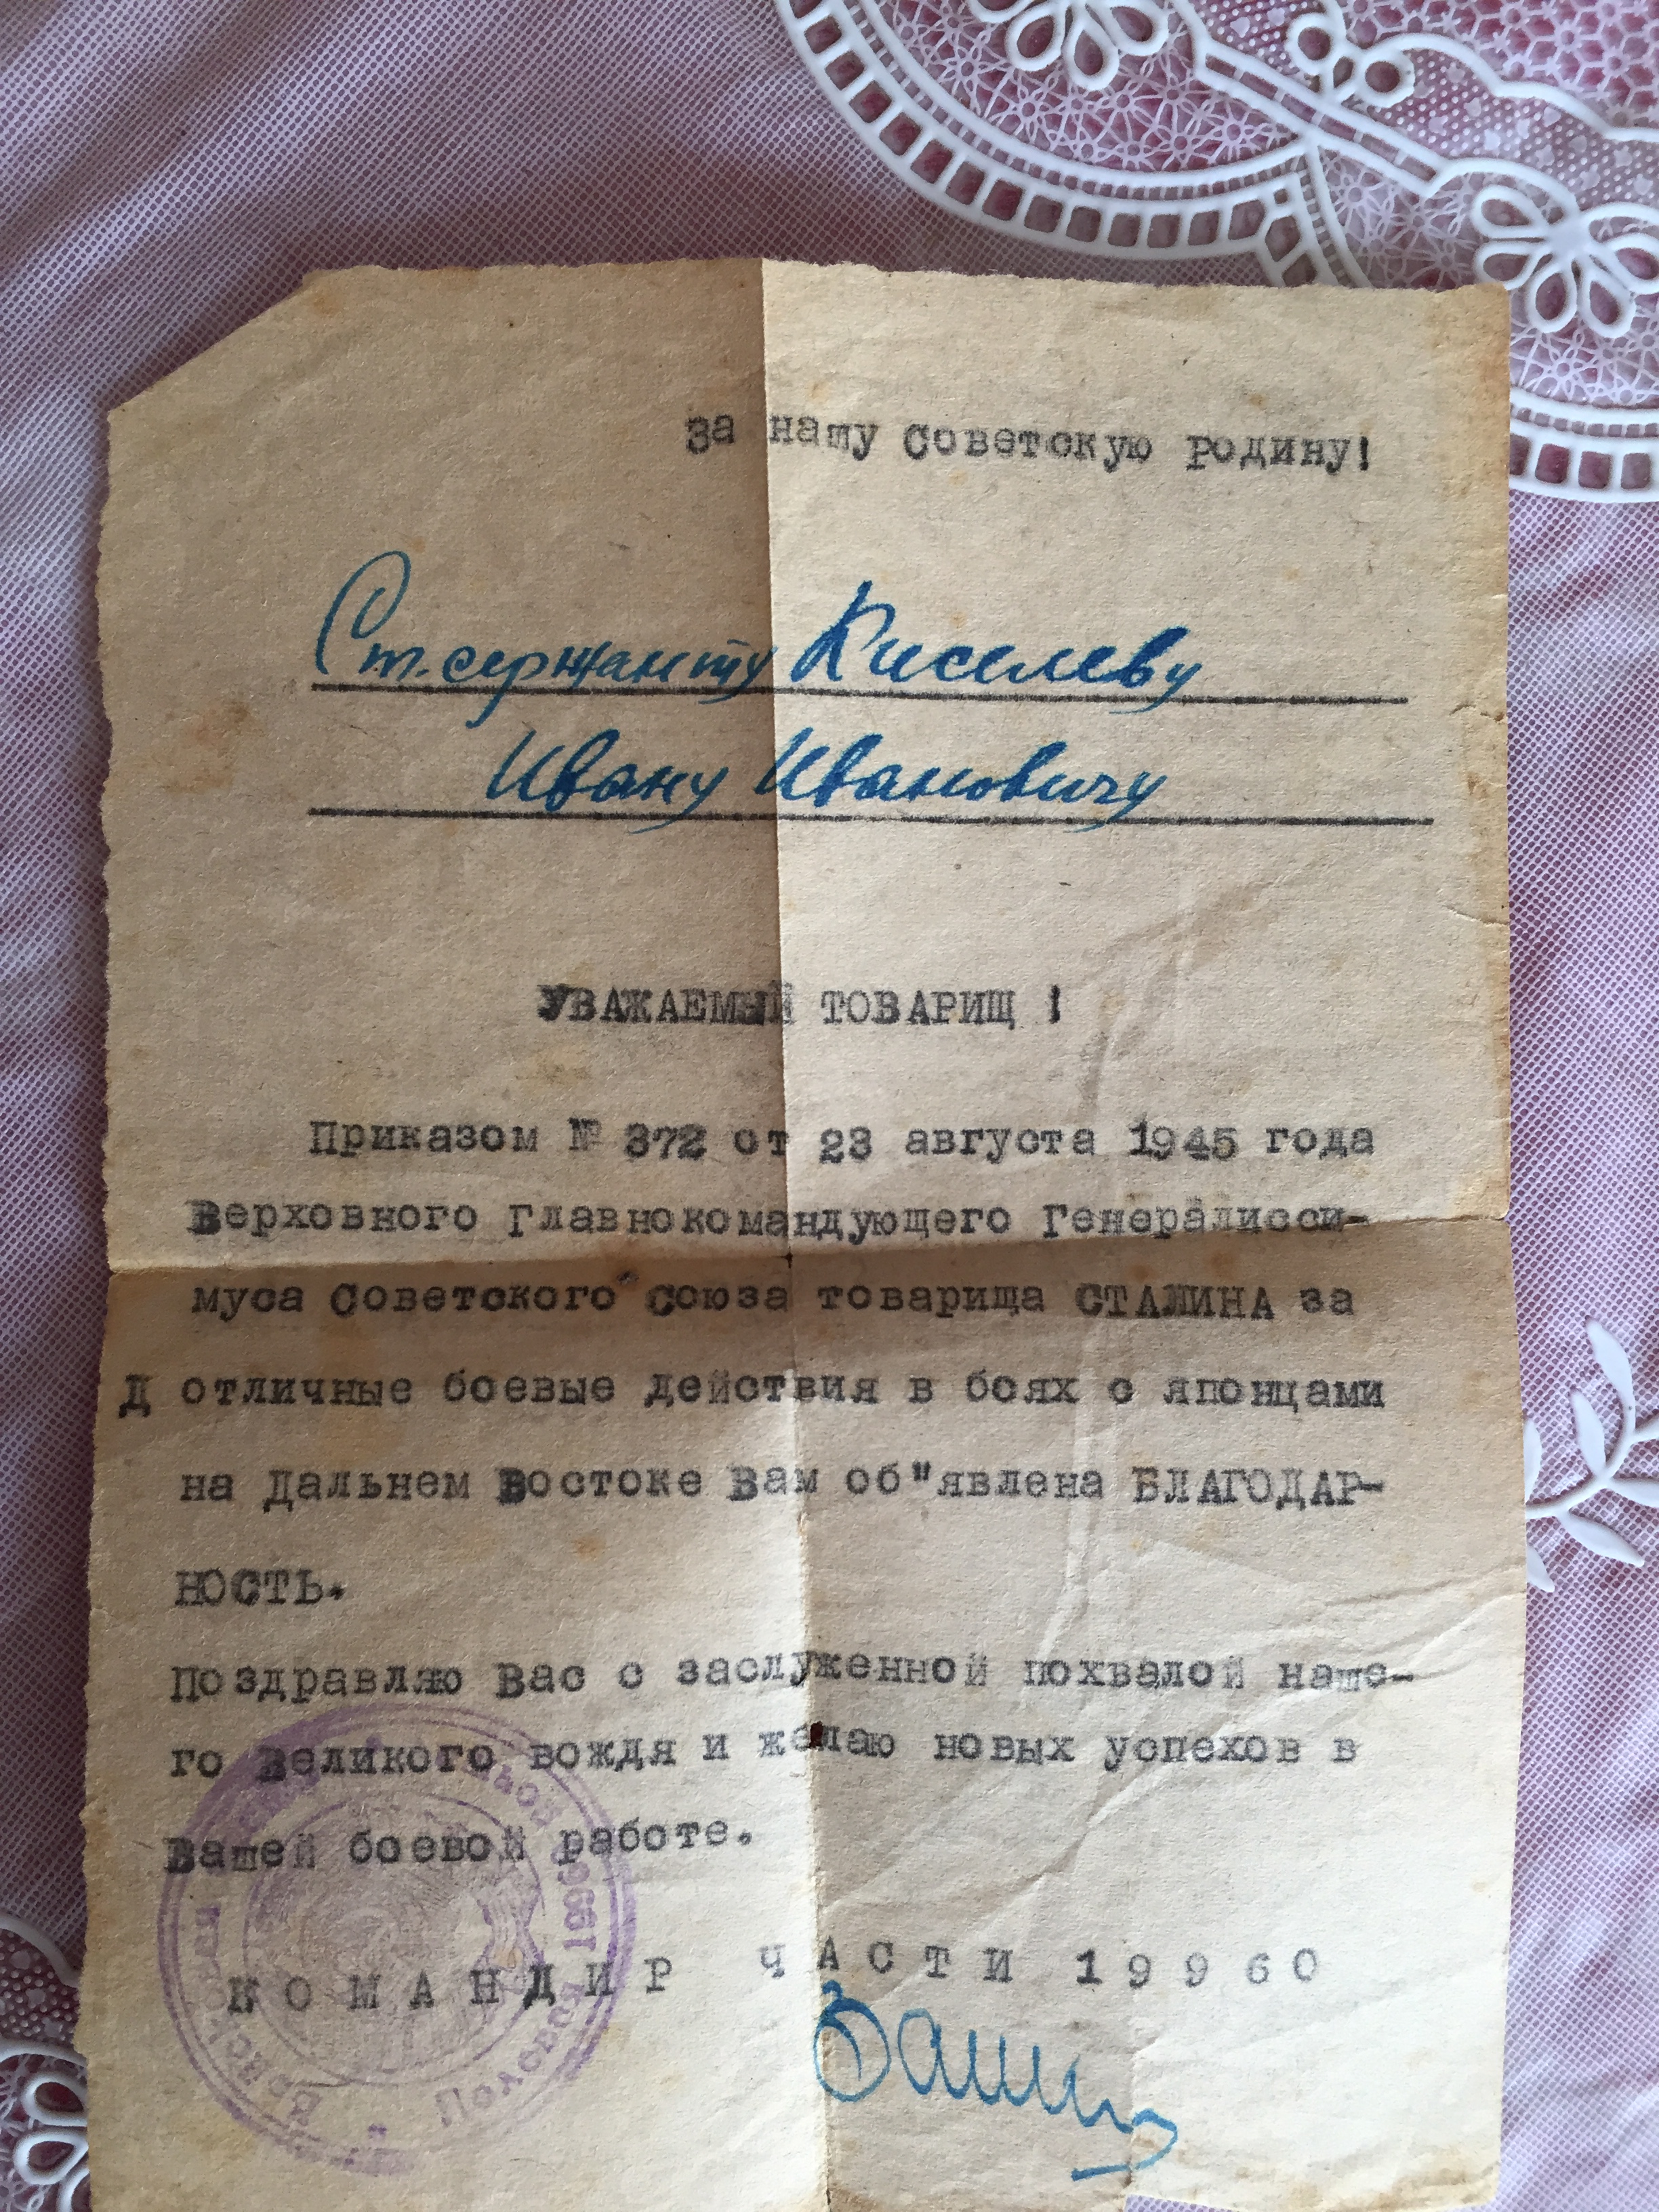 за нашу Советскую родину!
Ст. сержанту Киселеву
Ивану Ивановичу
УВАЖАЕМЫЙ ТОВАРИЩ !
Приказом № 372 от 23 августа 1945 года
Верховного Главнокомандующего Генералисси-
муса Советского Союза товарища СТАЛИНА за
Д отличные боевые действия в боях с японцами
на Дальнем Востоке Вам об"явлена БЛАГОДАР-
НОСТЬ.
Поздравляю Вас с заслуженной похвалой наше-
го Великого вождя и желаю новых успехов в
Вашей боевой работе.
КОМАНДИР ЧАСТИ 19960
Полевая